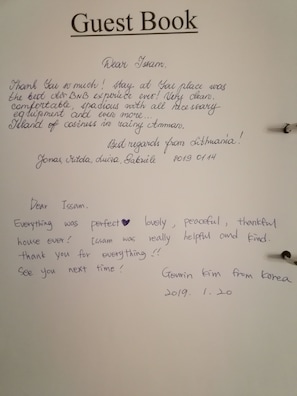 Guest Book
Dear Issam,
Thank You so much! stay at You place was
the best air BnB experice ever! Very clean,
comfortable, spacious with all necessary
equipment and even more...
Island of cosiness in rainy Amman.
Best regards from Lithuania!
Jonas, Luisa, Gabrielė 2019 01 14
Dear Issam.
Everything was perfect♥ lovely, peaceful, thankful
house ever! Issam was really helpful and kind.
thank you for everything!!
See you next time!
kim from Korea
2019. 1. 20